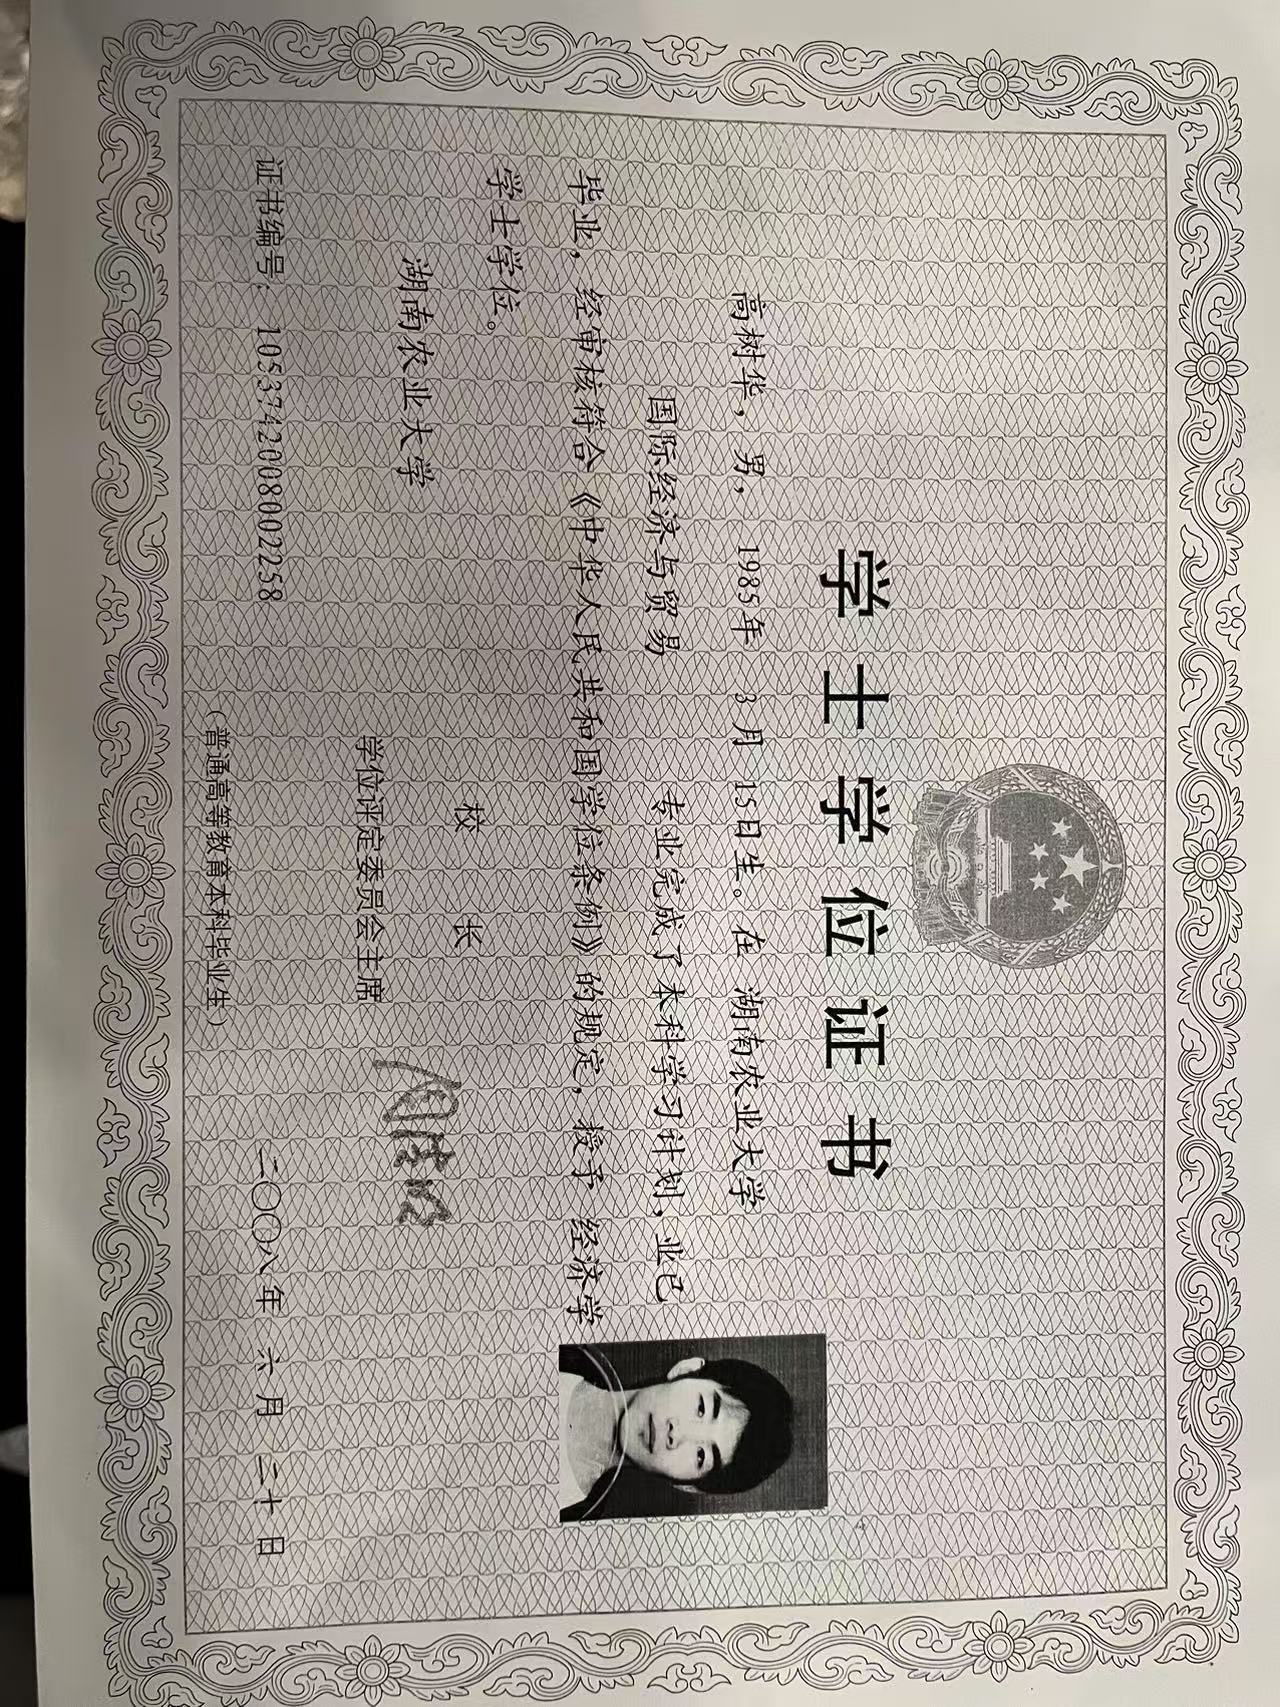 学士学位证书
高树华，男，1985年 3 月 15日生。在 湖南农业大学
国际经济与贸易 专业完成了本科学习计划，业已
毕业，经审核符合《中华人民共和国学位条例》的规定，授予 经济学
学士学位。
湖南农业大学
校 长
学位评定委员会主席
证书编号：1053742008002258
二〇〇八年 六月 三十日
（普通高等教育本科毕业生）